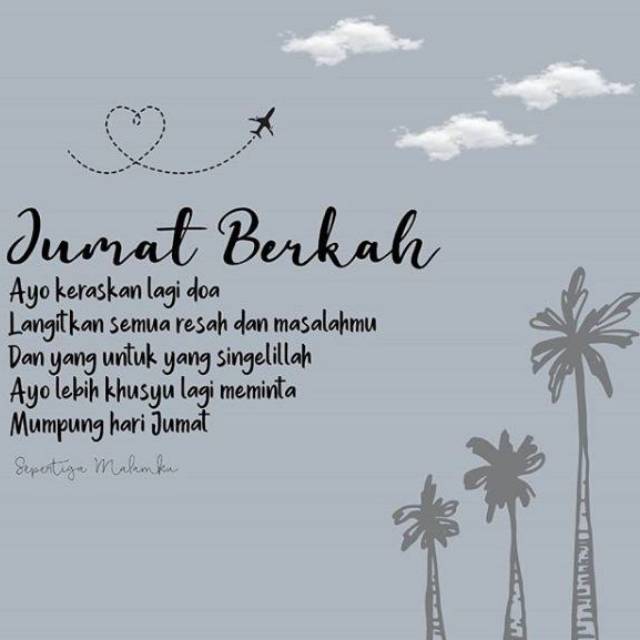 Jumat Berkah
Ayo keraskan lagi doa
Langitkan semua resah dan masalahmu
Dan yang untuk yang singelillah
Ayo lebih khusyu lagi meminta
Mumpung hari Jumat
Sepertiga Malamku